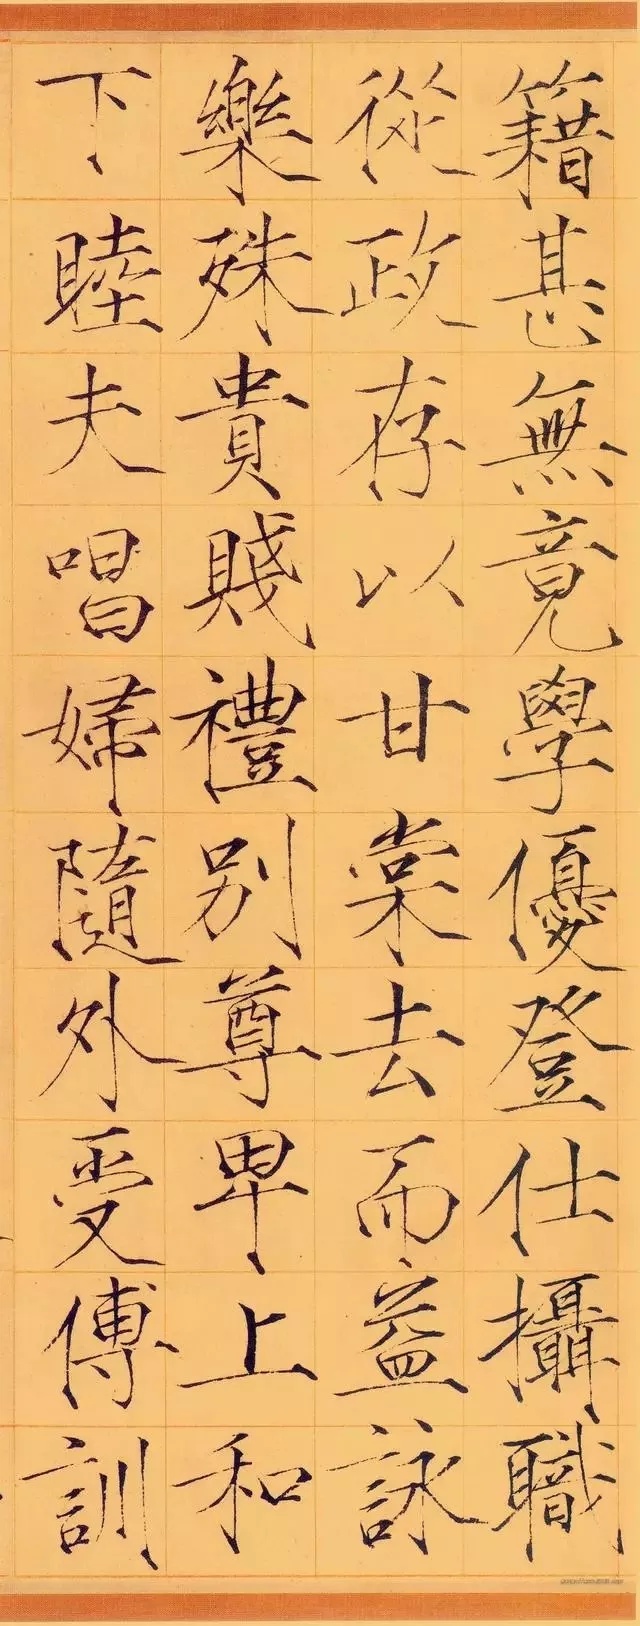 籍甚無竟學優登仕攝職
從政存以甘棠去而益詠
樂殊貴賤禮別尊卑上和
下睦夫唱婦隨外受傅訓